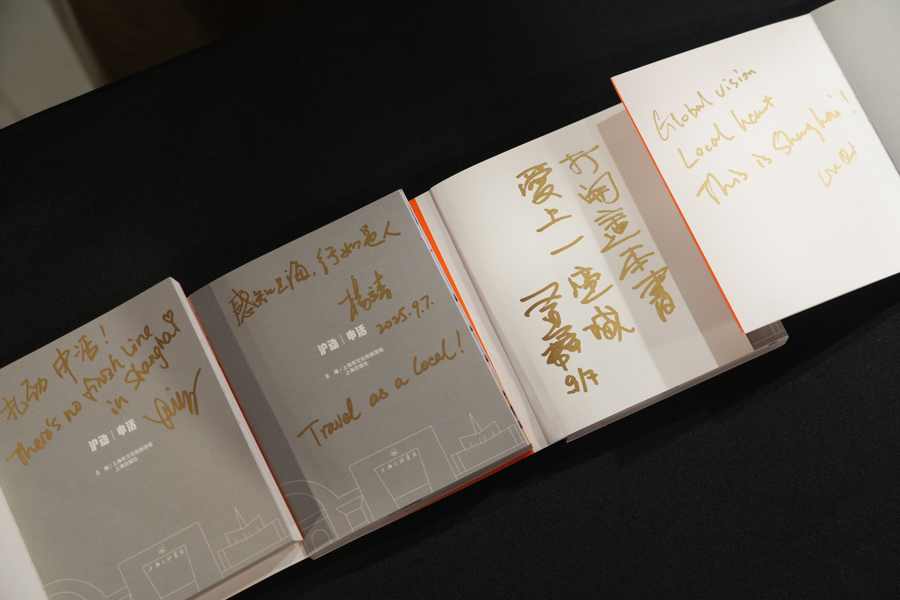 扎劲申活!
There's no finish line
in Shanghai
沪动 | 申活
主 编 / 上海市文化和旅游局
上海日报社
上海之根書店
感知上海,行如是人
2025.9.7.
沪动 | 申活
主 编 / 上海市文化和旅游局
上海日报社
Travel as a local!
打開這本書
愛上一座城
9/7
Global vision
Local heart
This is Shanghai!